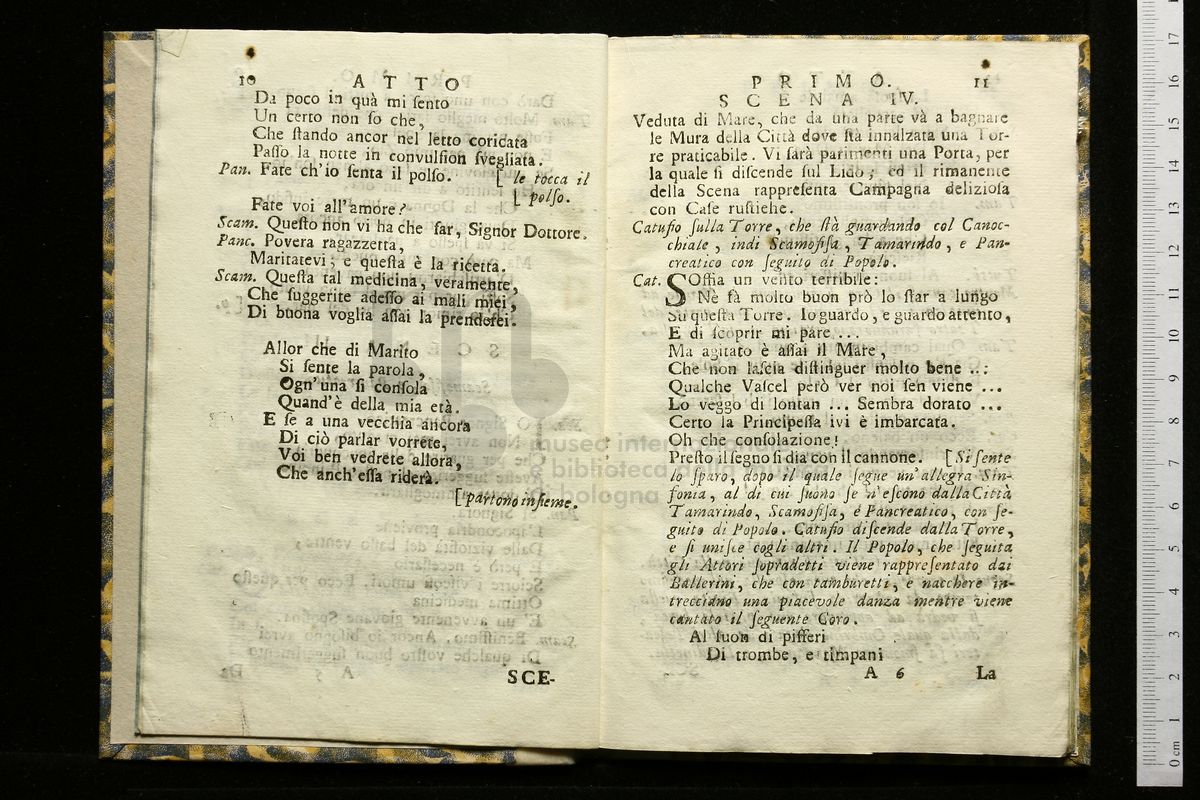 10 ATTO
Da poco in quà mi ſento
Un certo non ſo che,
Che ſtando ancor nel letto coricata
Paſſo la notte in convulſion ſvegliata.
Pan. Fate ch'io ſenta il polſo. [ le tocca il
[ polſo.
Fate voi all'amore?
Scam. Queſto non vi ha che far, Signor Dottore.
Panc. Povera ragazzetta,
Maritatevi; e queſta è la ricetta.
Scam. Queſta tal medicina, veramente,
Che ſuggerite adeſſo ai mali miei,
Di buona voglia aſſai la prenderei.
Allor che di Marito
Si ſente la parola,
Ogn'una ſi conſola
Quand'è della mia età.
E ſe a una vecchia ancora
Di ciò parlar vorrete,
Voi ben vedrete allora,
Che anch'eſſa riderà.
[ partono inſieme.
SCE-
PRIMO. 11
SCENA IV.
Veduta di Mare, che da una parte và a bagnare
le Mura della Città dove ſtà innalzata una Tor-
re praticabile. Vi ſarà parimenti una Porta, per
la quale ſi diſcende ſul Lido; ed il rimanente
della Scena rappreſenta Campagna delizioſa
con Caſe ruſtiche.
Catuſio ſulla Torre, che ſtà guardando col Canoc-
chiale, indi Scamoſiſa, Tamarindo, e Pan-
creatico con ſeguito di Popolo.
Cat. SOffia un vento terribile:
Nè fà molto buon prò lo ſtar a lungo
Su queſta Torre. Io guardo, e guardo attento,
E di ſcoprir mi pare ...
Ma agitato è aſſai il Mare,
Che non laſcia diſtinguer molto bene ..:
Qualche Vaſcel però ver noi ſen viene ...
Lo veggo di lontan ... Sembra dorato ...
Certo la Principeſſa ivi è imbarcata.
Oh che conſolazione!
Preſto il ſegno ſi dia con il cannone. [ Si ſente
lo ſparo, dopo il quale ſegue un'allegra Sin-
fonia, al di cui ſuono ſe n'eſcono dalla Città
Tamarindo, Scamoſiſa, e Pancreatico, con ſe-
guito di Popolo. Catuſio diſcende dalla Torre,
e ſi uniſce cogli altri. Il Popolo, che ſeguita
gli Attori ſopradetti viene rappreſentato dai
Ballerini, che con tamburetti, e nacchere in-
trecciano una piacevole danza mentre viene
cantato il ſeguente Coro.
Al ſuon di pifferi
Di trombe, e timpani
A 6 La